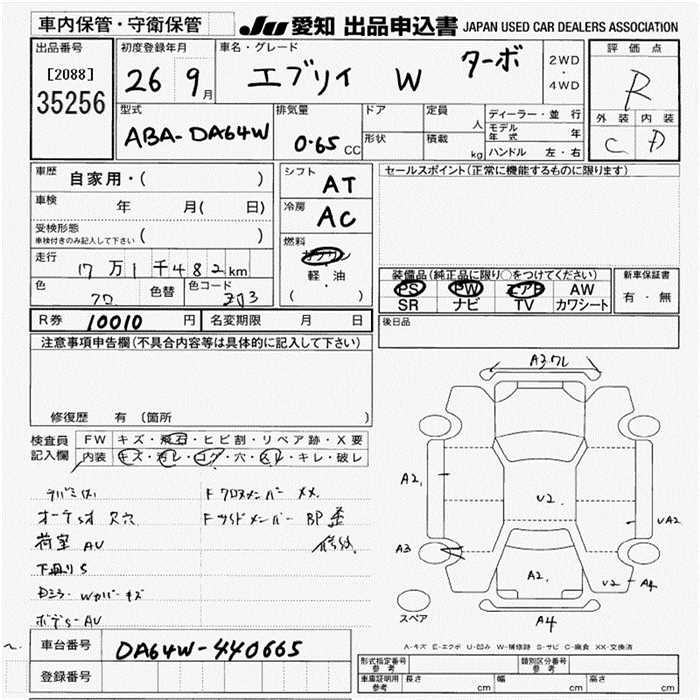 車内保管・守衛保管
JU 愛知 出品申込書 JAPAN USED CAR DEALERS ASSOCIATION
出品番号
[2088]
35256
初度登録年月
26 9月
車名・グレード
エブリイ W ターボ
2WD
・
4WD
評価点
R
外装 内装
C D
型式
ABA-DA64W
排気量
0.65 CC
ドア
形状
定員
人
積載
kg
ディーラー・並 行
モデル年式 年
ハンドル 左・右
車歴
自家用・( )
車検
年 月( 日)
受検形態
車検付きのみ記入して下さい ( )
走行
17万1千482km
色
色替
色コード
ZJ3
シフト
AT
冷房
AC
燃料
ガソリン
・
軽・油
( )
セールスポイント(正常に機能するものに限ります)
装備品(純正品に限り○をつけてください)
PS PW エアB AW
SR ナビ TV カワシート
新車保証書
有・無
R券 10010 円
名変期限 月 日
後日品
注意事項申告欄(不具合内容等は具体的に記入して下さい)
修復歴 有 (箇所
検査員
記入欄
FW キズ・飛石・ヒビ割・リペア跡・X要
内装 キズ・汚レ・コゲ・穴・スレ・キレ・破レ
Fクロスメンバー XX
オーディオ欠穴
FサイドメンバーBP歪
修跡
荷室 AU
下廻りS
DミラーWカバーキズ
車台番号 DA64W-440665
登録番号
A3ワレ
A2
U2
UA2
A3
A2
U2
A4
A4
スペア
A-キズ E-エクボ U-凹み W-補修跡 S-サビ C-腐食 XX-交換済
形式指定番号
参考
類別区分番号
参考
車庫証明用
参考
長さ cm
幅 cm
高さ cm